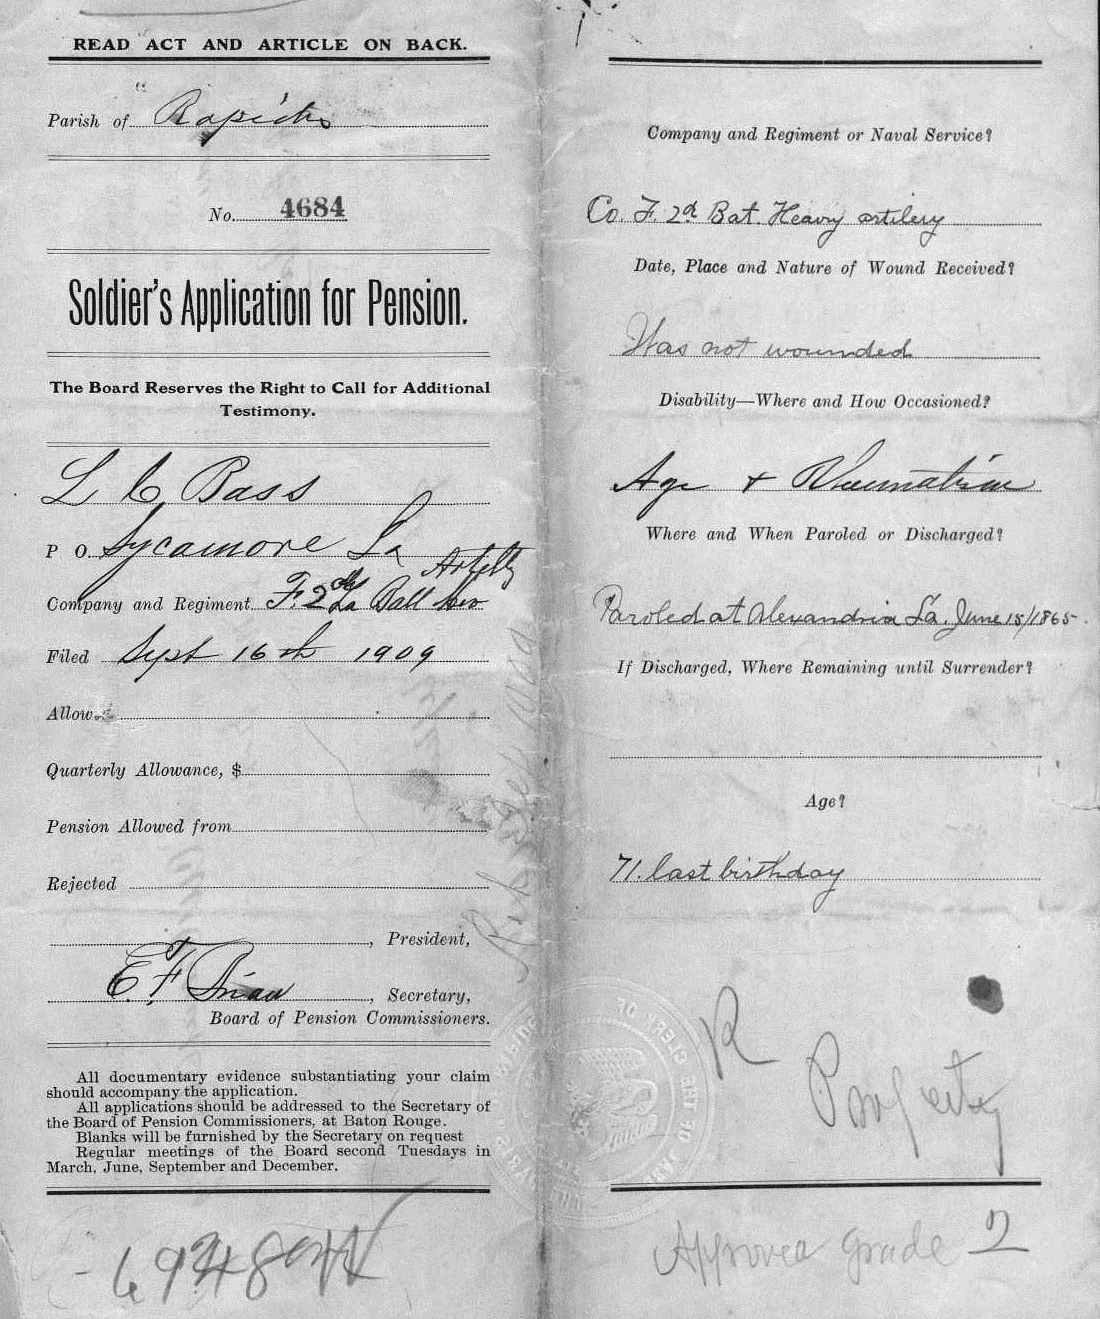 READ ACT AND ARTICLE ON BACK.
Parish of Rapides
No. 4684
Soldier's Application for Pension.
The Board Reserves the Right to Call for Additional
Testimony.
L C Bass
P O. Sycamore La
Artilly
Company and Regiment F. 2 La Batt Hev
Filed Sept 16th 1909
Allow
Quarterly Allowance, $
Pension Allowed from
Rejected
, President,
E. F. Brian , Secretary,
Board of Pension Commissioners.
All documentary evidence substantiating your claim
should accompany the application.
All applications should be addressed to the Secretary of
the Board of Pension Commissioners, at Baton Rouge.
Blanks will be furnished by the Secretary on request
Regular meetings of the Board second Tuesdays in
March, June, September and December.
Company and Regiment or Naval Service?
Co. F. 2d Bat. Heavy artilery
Date, Place and Nature of Wound Received?
Was not wounded
Disability—Where and How Occasioned?
Age + Rheumatism
Where and When Paroled or Discharged?
Paroled at Alexandria La. June 15/1865-
If Discharged, Where Remaining until Surrender?
Age?
71. last birthday
R
Property
Approved grade 2